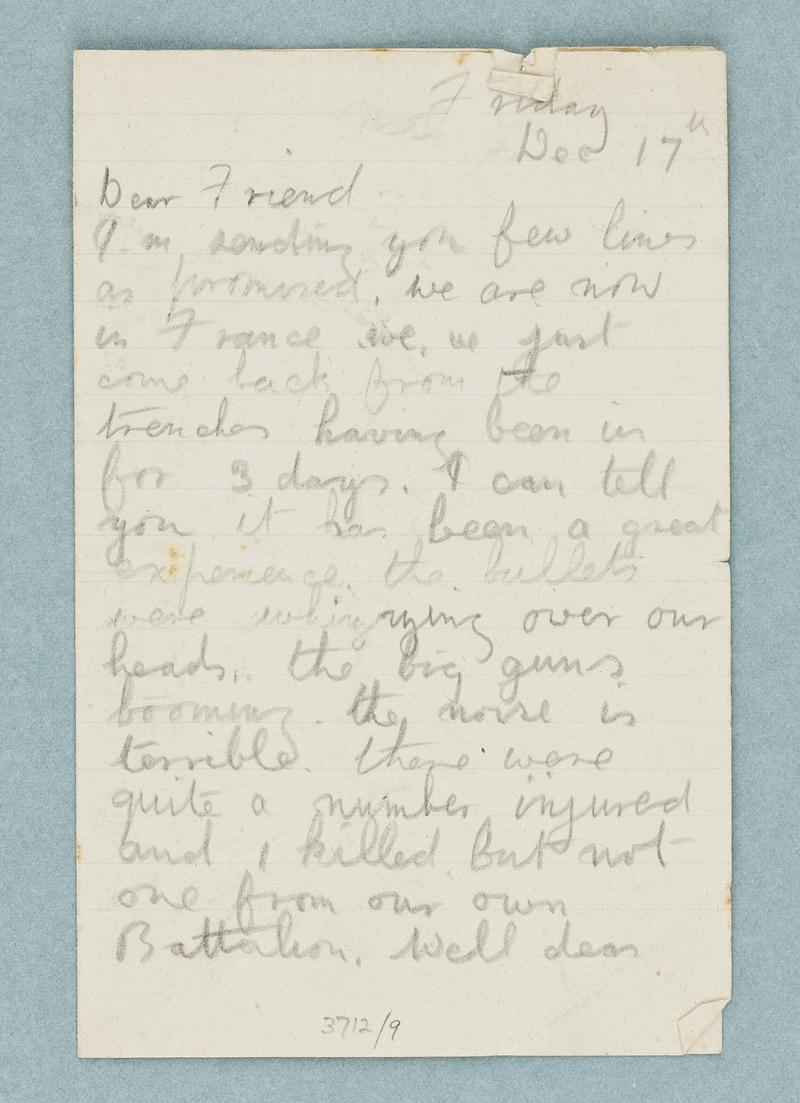 Friday
Dec 17th
Dear Friend
I'm sending you few lines
as promised, we are now
in France we,ve just
come back from the
trenches having been in
for 3 days. I can tell
you it has been a great
experience. the bullets
were over our
heads,. the big guns
booming. the noise is
terrible. there were
quite a number injured
and 1 killed but not
one from our own
Battalion. Well dear
3712/9